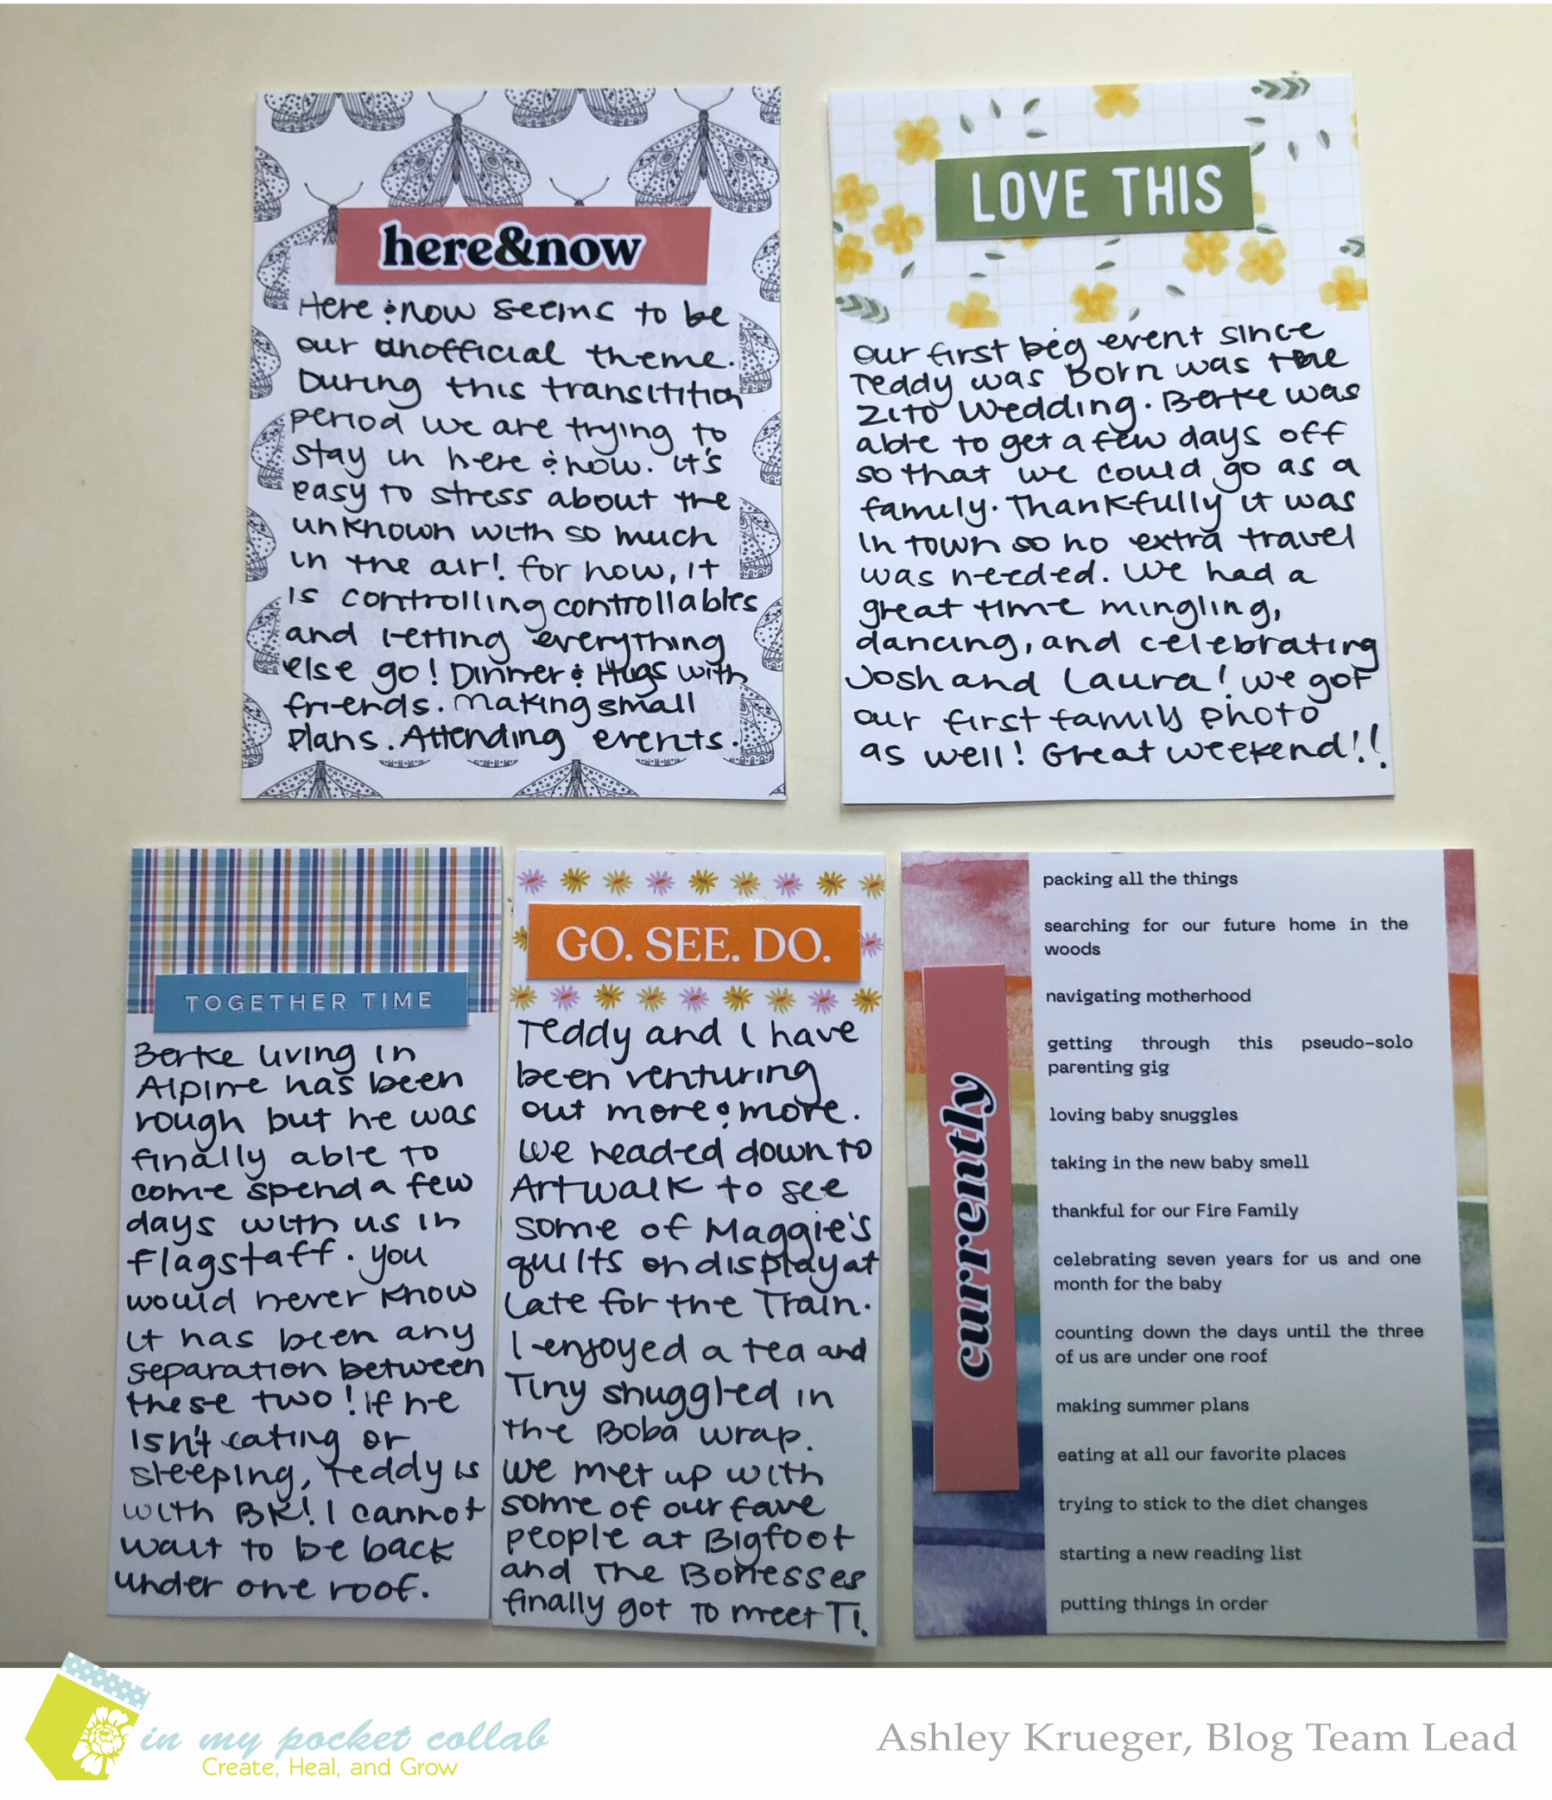 here&now
Here & now seems to be
our unofficial theme.
During this transitition
period we are trying to
stay in here & now. It's
easy to stress about the
unknown with so much
in the air! For now, it
is controlling controllables
and letting everything
else go! Dinner & Hugs with
friends. Making small
plans. Attending events.
LOVE THIS
Our first big event since
Teddy was born was the
Zito Wedding. Berke was
able to get a few days off
so that we could go as a
family. Thankfully it was
in town so no extra travel
was needed. We had a
great time mingling,
dancing, and celebrating
Josh and Laura! We got
our first family photo
as well! Great weekend!!
TOGETHER TIME
Berke living in
Alpine has been
rough but he was
finally able to
come spend a few
days with us in
Flagstaff. You
would never know
it has been any
separation between
these two! If he
isn't eating or
sleeping, Teddy is
with BK! I cannot
wait to be back
under one roof.
GO. SEE. DO.
Teddy and I have
been venturing
out more & more.
We headed down to
Artwalk to see
some of Maggie's
quilts on display at
Late for the Train.
I enjoyed a tea and
Tiny snuggled in
the Boba wrap.
We met up with
some of our fave
people at Bigfoot
and the Bonesses
finally got to meet T!
currently
packing all the things
searching for our future home in the
woods
navigating motherhood
getting through this pseudo-solo
parenting gig
loving baby snuggles
taking in the new baby smell
thankful for our Fire Family
celebrating seven years for us and one
month for the baby
counting down the days until the three
of us are under one roof
making summer plans
eating at all our favorite places
trying to stick to the diet changes
starting a new reading list
putting things in order
in my pocket collab
Create, Heal, and Grow
Ashley Krueger, Blog Team Lead